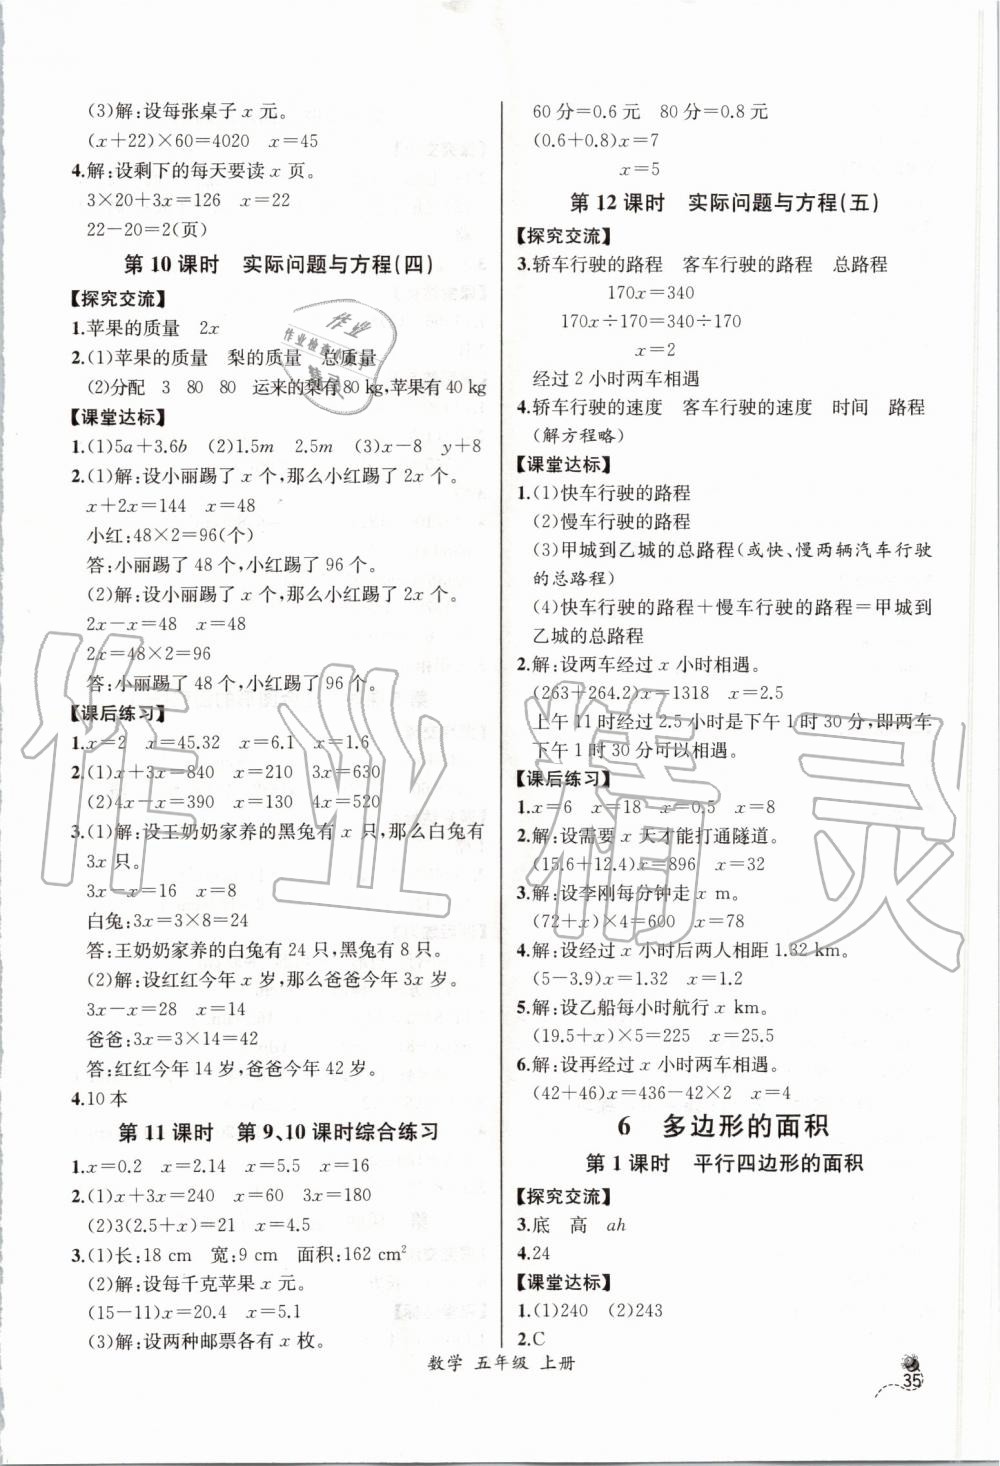 (3)解:设每张桌子 x 元。
(x+22)×60=4020　x=45
4.解:设剩下的每天要读 x 页。
3×20+3x=126　x=22
22-20=2(页)
第 10 课时　实际问题与方程(四)
【探究交流】
1.苹果的质量　2x
2.(1)苹果的质量　梨的质量　总质量
(2)分配　3　80　80　运来的梨有 80 kg,苹果有 40 kg
【课堂达标】
1.(1)5a+3.6b　(2)1.5m　2.5m　(3)x-8　y+8
2.(1)解:设小丽踢了 x 个,那么小红踢了 2x 个。
x+2x=144　x=48
小红:48×2=96(个)
答:小丽踢了 48 个,小红踢了 96 个。
(2)解:设小丽踢了 x 个,那么小红踢了 2x 个。
2x-x=48　x=48
2x=48×2=96
答:小丽踢了 48 个,小红踢了 96 个。
【课后练习】
1.x=2　x=45.32　x=6.1　x=1.6
2.(1)x+3x=840　x=210　3x=630
(2)4x-x=390　x=130　4x=520
3.(1)解:设王奶奶家养的黑兔有 x 只,那么白兔有
3x 只。
3x-x=16　x=8
白兔:3x=3×8=24
答:王奶奶家养的白兔有 24 只,黑兔有 8 只。
(2)解:设红红今年 x 岁,那么爸爸今年 3x 岁。
3x-x=28　x=14
爸爸:3x=3×14=42
答:红红今年 14 岁,爸爸今年 42 岁。
4.10 本
第 11 课时　第 9、10 课时综合练习
1.x=0.2　x=2.14　x=5.5　x=16
2.(1)x+3x=240　x=60　3x=180
(2)3(2.5+x)=21　x=4.5
3.(1)长:18 cm　宽:9 cm　面积:162 cm²
(2)解:设每千克苹果 x 元。
(15-11)x=20.4　x=5.1
(3)解:设两种邮票各有 x 枚。
60 分=0.6 元　80 分=0.8 元
(0.6+0.8)x=7
x=5
第 12 课时　实际问题与方程(五)
【探究交流】
3.轿车行驶的路程　客车行驶的路程　总路程
170x=340
170x÷170=340÷170
x=2
经过 2 小时两车相遇
4.轿车行驶的速度　客车行驶的速度　时间　路程
(解方程略)
【课堂达标】
1.(1)快车行驶的路程
(2)慢车行驶的路程
(3)甲城到乙城的总路程(或快、慢两辆汽车行驶
的总路程)
(4)快车行驶的路程+慢车行驶的路程=甲城到
乙城的总路程
2.解:设两车经过 x 小时相遇。
(263+264.2)x=1318　x=2.5
上午 11 时经过 2.5 小时是下午 1 时 30 分,即两车
下午 1 时 30 分可以相遇。
【课后练习】
1.x=6　x=18　x=0.5　x=8
2.解:设需要 x 天才能打通隧道。
(15.6+12.4)x=896　x=32
3.解:设李刚每分钟走 x m。
(72+x)×4=600　x=78
4.解:设经过 x 小时后两人相距 1.32 km。
(5-3.9)x=1.32　x=1.2
5.解:设乙船每小时航行 x km。
(19.5+x)×5=225　x=25.5
6.解:设再经过 x 小时两车相遇。
(42+46)x=436-42×2　x=4
6　多边形的面积
第 1 课时　平行四边形的面积
【探究交流】
3.底　高　ah
4.24
【课堂达标】
1.(1)240　(2)243
2.C
数学　五年级　上册
35
作业精灵